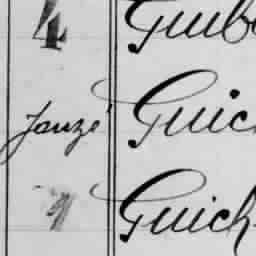 4 Guibo
Janzé Guic
Guich